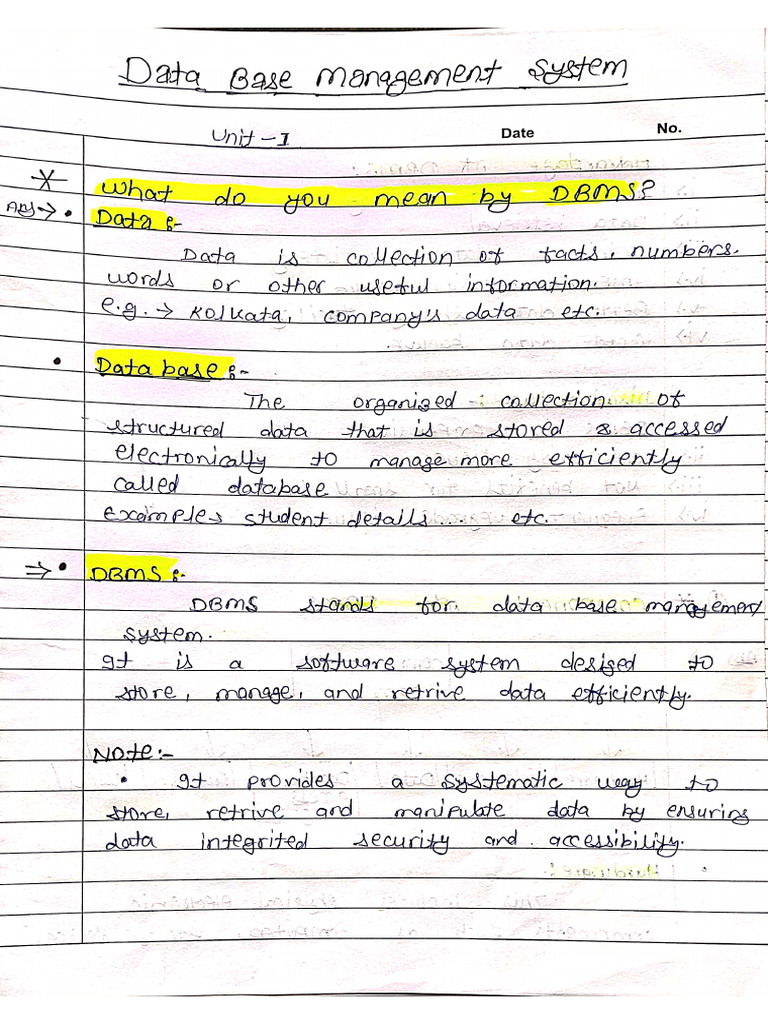 Data Base Management System
Unit - I Date No.
What do you mean by DBMS?
Ans → • Data :-
Data is collection of facts, numbers.
words or other useful information.
e.g. → Kolkata, company's data etc.
• Data base :-
The organized collection of
structured data that is stored & accessed
electronically to manage more efficiently
called database
examples student details etc.
⇒ • DBMS :-
DBMS stands for data base management
system.
It is a software system desiged to
store, manage, and retrive data efficiently.
Note :-
• It provides a systematic way to
store, retrive and manipulate data by ensuring
data integrited security and accessibility.